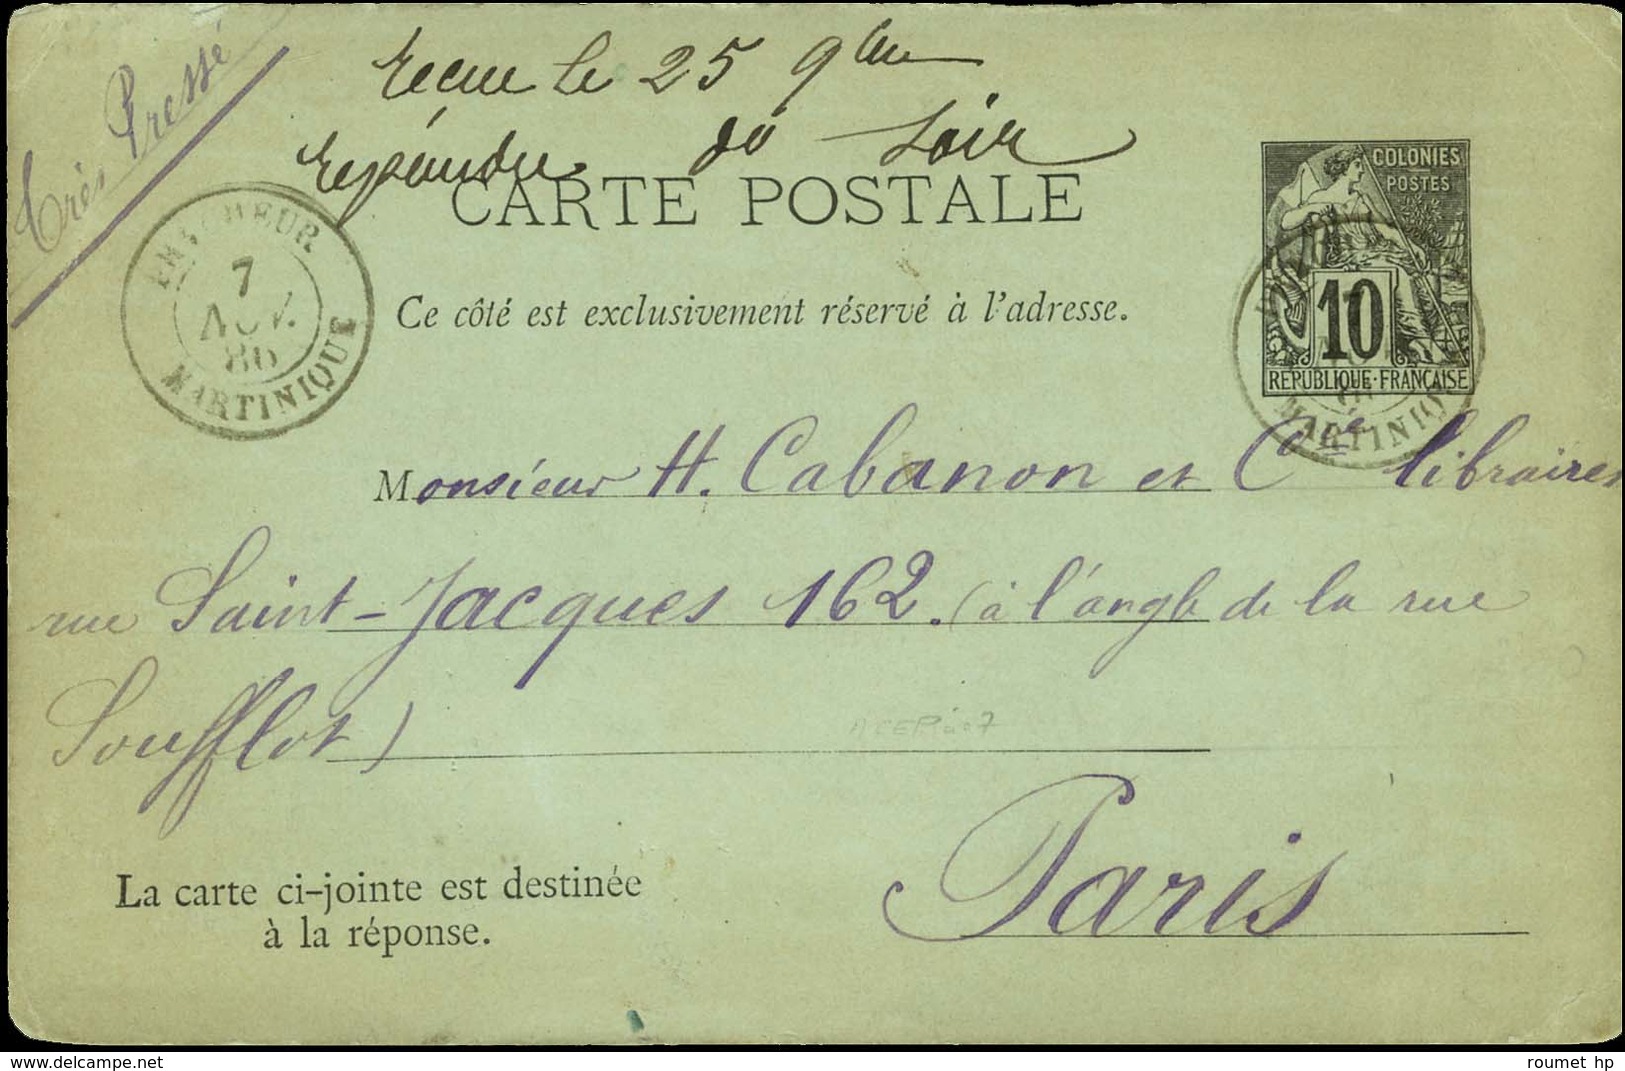 Très Pressé
reçue le 25 9bre
répondue do soir
CARTE POSTALE
Ce côté est exclusivement réservé à l'adresse.
7
NOV.
86
MARTINIQUE
COLONIES
POSTES
10
REPUBLIQUE·FRANÇAISE
MARTINIQUE
Monsieur H. Cabanon et Cie libraires
rue Saint-Jacques 162. (à l'angle de la rue
Soufflot)
Paris
La carte ci-jointe est destinée
à la réponse.
roumet hp